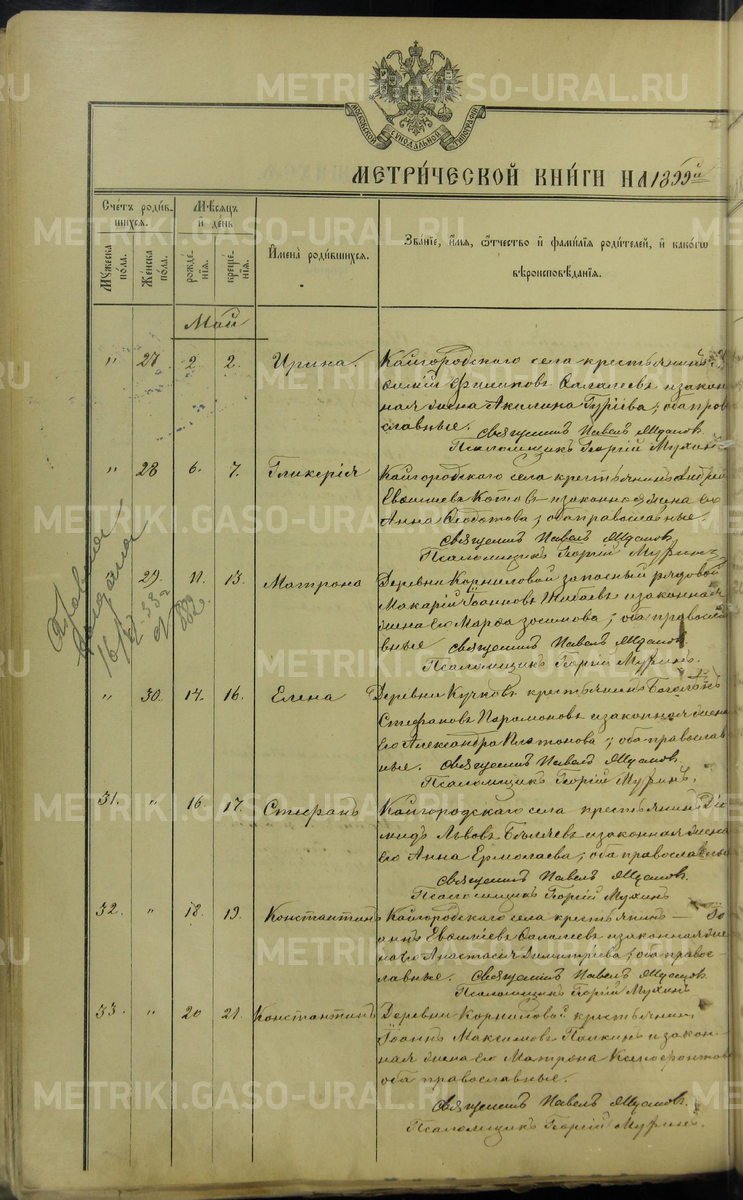 МЕТРИ́ЧЕСКОЙ КНИ́ГИ НА 1899й
МОСКОВСКОЙ СѴНОДАЛЬНОЙ ТИПОГРАФІИ
Сче́тъ роди́в-
шихся.
Му́жеска по́ла.
Же́нска по́ла.
Мѣ́сяцъ
и҆ де́нь
рожде́-
нія.
креще́-
нія.
И҆мена̀ роди́вшихся.
Зва́ніе, и҆́мя, ѻ҆́тчество и҆ фами́лія роди́телей, и҆ како́гѡ
вѣроисповѣ́данія.
Май
" 27 2. 2. Ирина. Кайгородскаго села крестьянинъ
Филиповъ Салалеевъ и закон
ная жена Акилина Гуріева, оба прав
славные.
Священникъ Павелъ
Псаломщикъ Георгій Мухинъ
" 28 6. 7. Гликерія Кайгородскаго села крестьянинъ Андрей
Евсишевъ Котовъ и законная жена его
Анна Ѳедотова; оба православные.
Священникъ Павелъ
Псаломщикъ Георгій Муринъ
29. 11. 13. Матрона Деревни Корниловой запасный рядовой
Макарій Іоанновъ и законная
жена его Марѳа Зосимова; оба правосла
вные Священникъ Павелъ
Псаломщикъ Георгій Муринъ.
" 30. 14. 16. Елена Деревни Кучковъ крестьянинъ
Стефановъ Парамоновъ и законная жена
его Александра Платонова; оба православ
ные. Священникъ Павелъ
Псаломщикъ Георгій Муринъ.
31. " 16. 17. Стефанъ Кайгородскаго села крестьянинъ Діо
мидъ Львовъ и законная жена
его Анна Ермолаева; оба православны
Священникъ Павелъ
Псаломщикъ Георгій Мухинъ
32. " 18. 19. Константинъ Кайгородскаго села крестьянинъ — Іо
аннъ Евсишевъ Салалеевъ и законная же
на его Анастасія Димитріева; оба правос-
лавные. Священникъ Павелъ
Псаломщикъ Георгій Мухинъ
33. " 20 21. Константинъ Деревни Корниловой крестьянинъ
Іоаннъ Максимовъ Палкинъ и закон-
ная жена его Матрона Ксенофонтов
оба православные.
Священникъ Павелъ
Псаломщикъ Георгій Муринъ.
METRIKI.GASO-URAL.RU